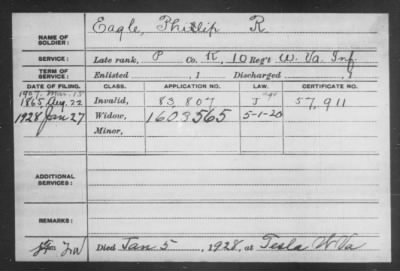 NAME OF SOLDIER: Eagle, Phillip R.
SERVICE: Late rank, P Co. K, 10 Reg't W. Va. Inf.
TERM OF SERVICE: Enlisted , 1 Discharged , 1
DATE OF FILING. CLASS. APPLICATION NO. LAW. CERTIFICATE NO.
1907 Mar. 15
1865 Aug. 22 Invalid, 83,807 J 57,911
1928 Jan 27 Widow, 1603565 5-1-20
Minor,
ADDITIONAL SERVICES:
REMARKS:
Died Jan 5, 1928, at Tesla W Va